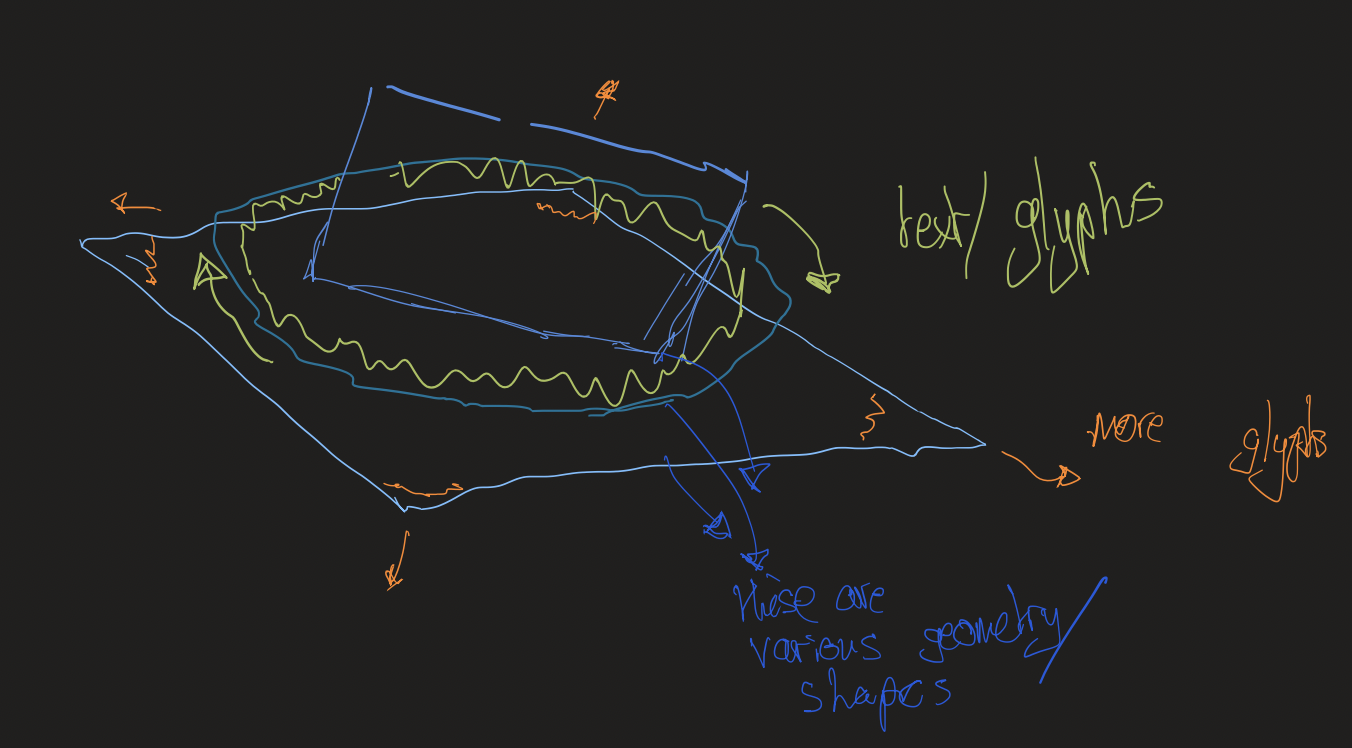 text/ glyphs
more glyphs
these are
various geometry/
shapes